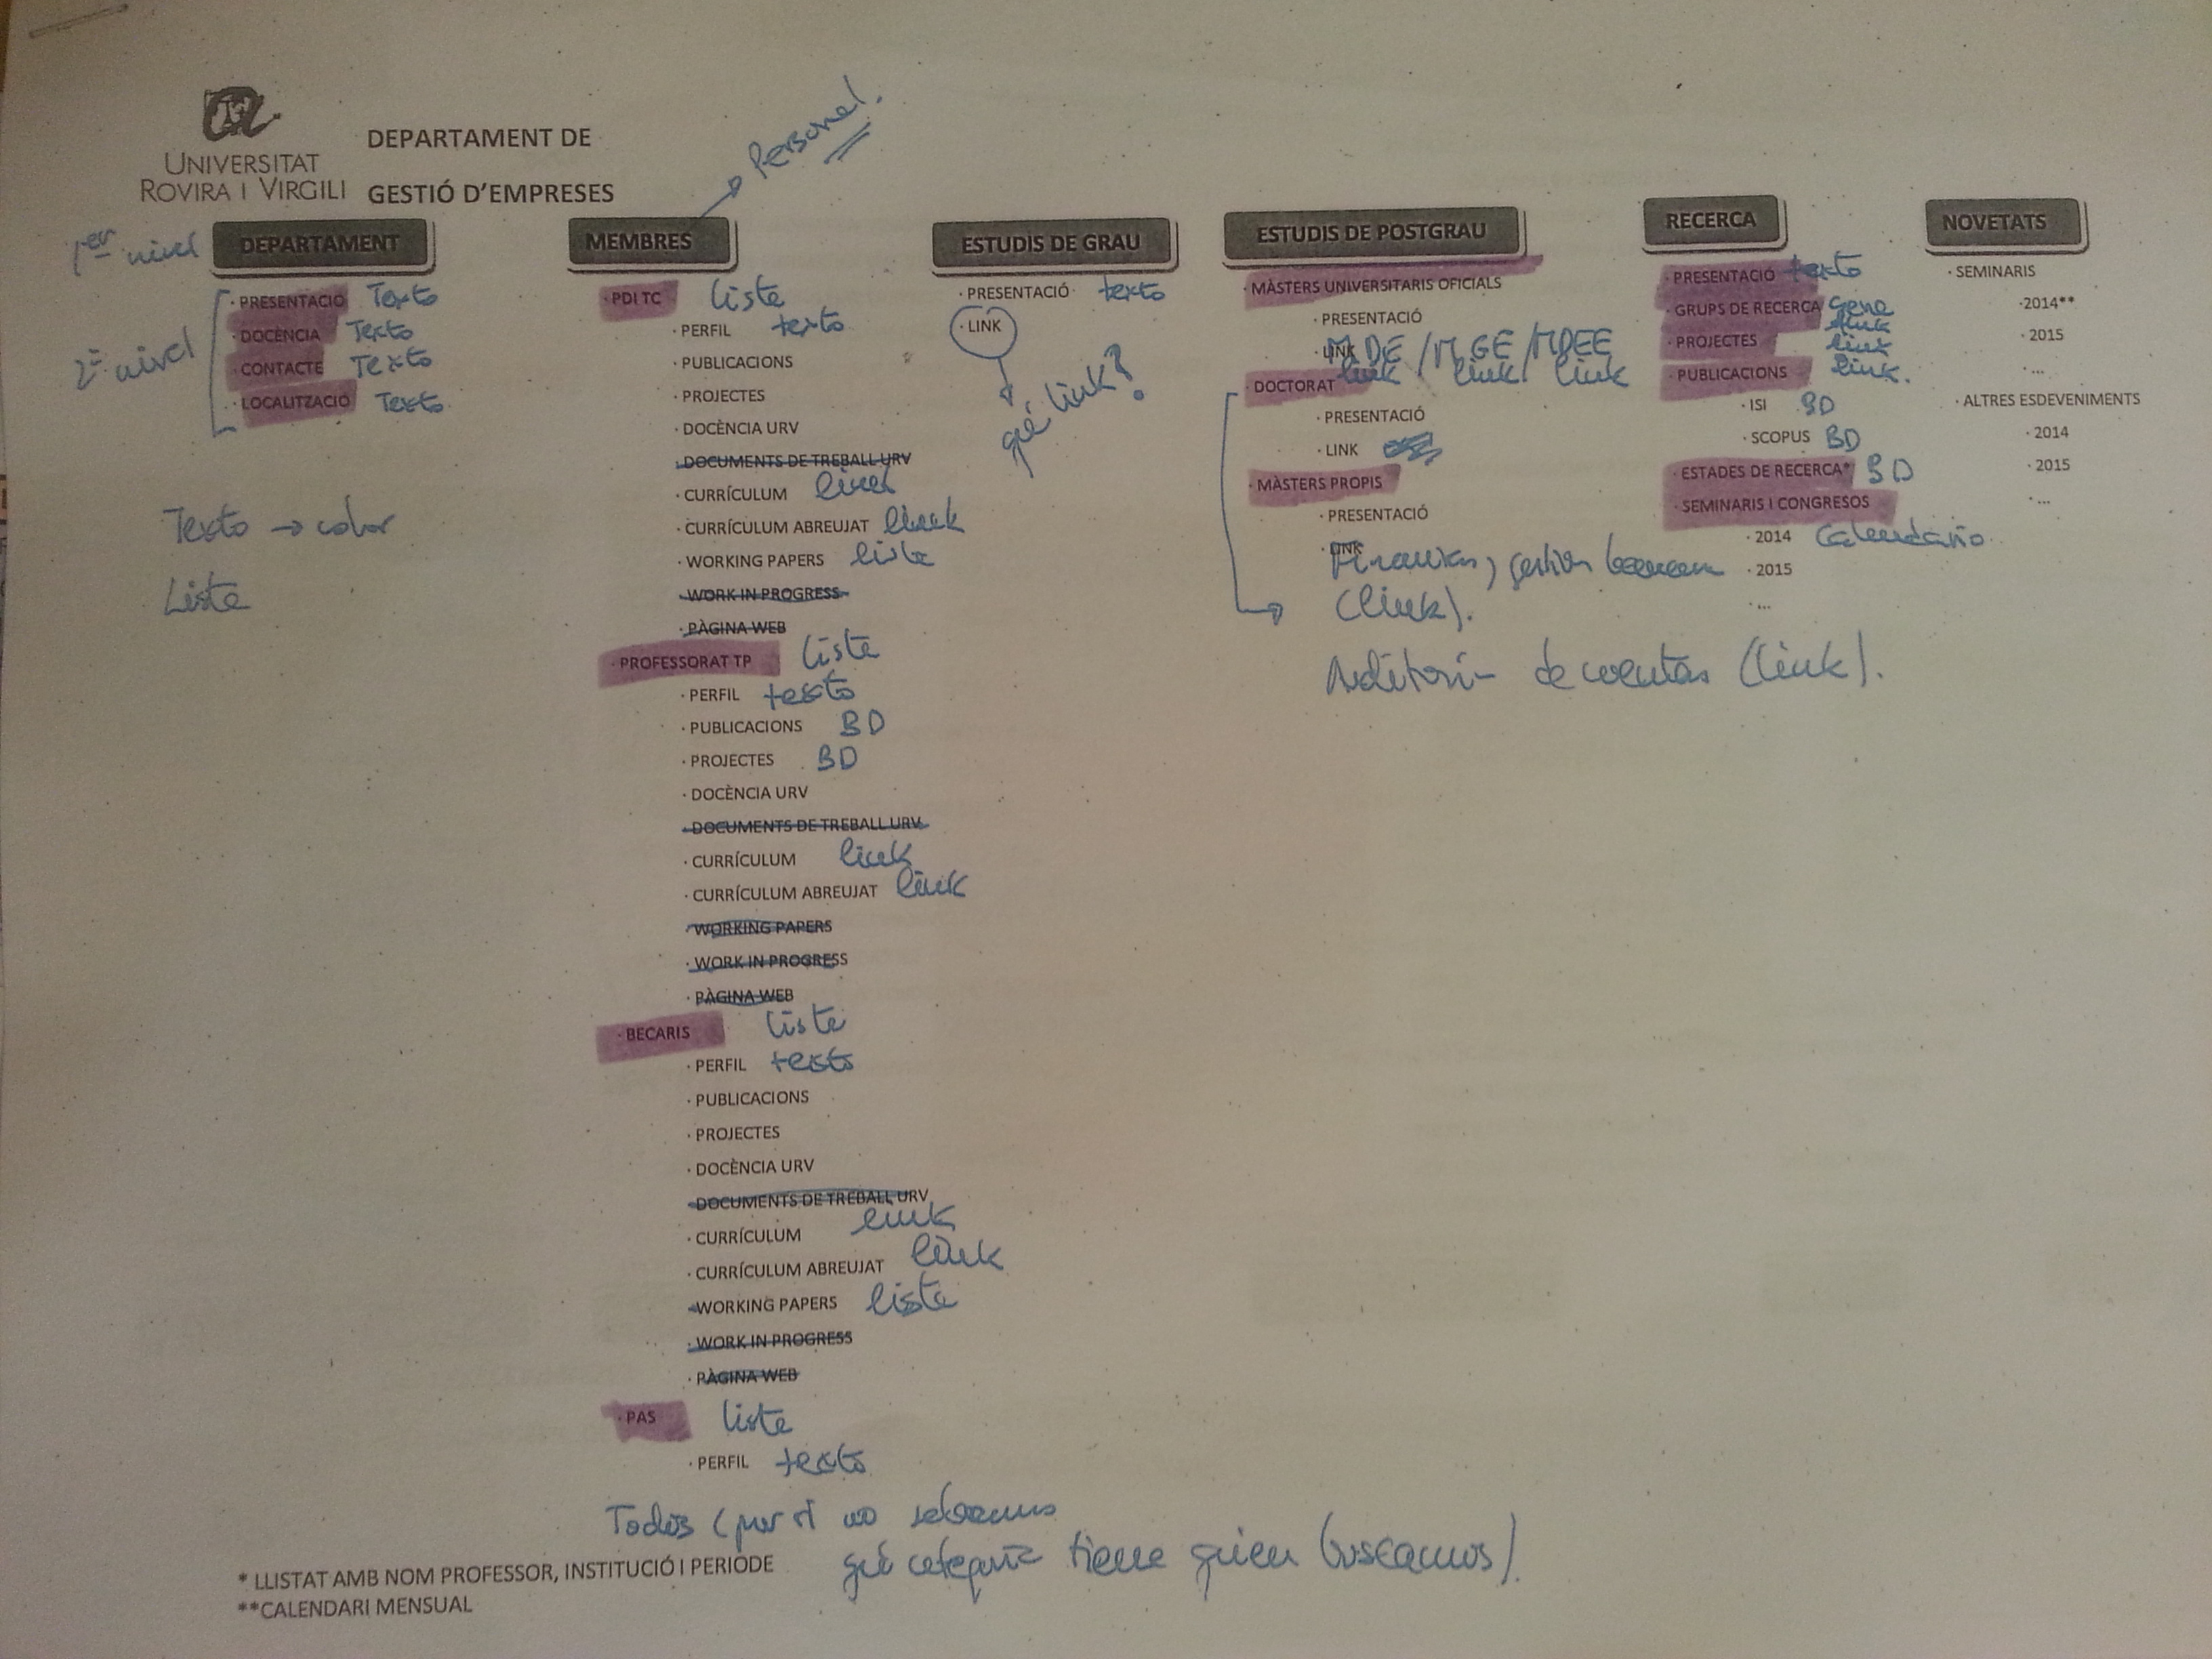 UNIVERSITAT
ROVIRA I VIRGILI
DEPARTAMENT DE
GESTIÓ D'EMPRESES
Personal.
1er nivel
2º nivel
DEPARTAMENT
· PRESENTACIÓ Texto
· DOCÈNCIA Texto
· CONTACTE Texto
· LOCALITZACIÓ Texto
Texto → color
Liste
MEMBRES
· PDI TC Liste
· PERFIL texto
· PUBLICACIONS
· PROJECTES
· DOCÈNCIA URV
· DOCUMENTS DE TREBALL URV
· CURRÍCULUM link
· CURRÍCULUM ABREUJAT link
· WORKING PAPERS liste
· WORK IN PROGRESS
· PÀGINA WEB
· PROFESSORAT TP Liste
· PERFIL texto
· PUBLICACIONS BD
· PROJECTES BD
· DOCÈNCIA URV
· DOCUMENTS DE TREBALL URV
· CURRÍCULUM link
· CURRÍCULUM ABREUJAT link
· WORKING PAPERS
· WORK IN PROGRESS
· PÀGINA WEB
· BECARIS Liste
· PERFIL texto
· PUBLICACIONS
· PROJECTES
· DOCÈNCIA URV
· DOCUMENTS DE TREBALL URV
· CURRÍCULUM link
· CURRÍCULUM ABREUJAT link
· WORKING PAPERS liste
· WORK IN PROGRESS
· PÀGINA WEB
· PAS liste
· PERFIL texto
Todos (por si no sabemos
qué categoría tiene quien buscamos).
ESTUDIS DE GRAU
· PRESENTACIÓ texto
· LINK
qué link?
ESTUDIS DE POSTGRAU
· MÀSTERS UNIVERSITARIS OFICIALS
· PRESENTACIÓ
· LINK MDE / MGE / MDEE
link / link / link
· DOCTORAT
· PRESENTACIÓ
· LINK
· MÀSTERS PROPIS
· PRESENTACIÓ
· LINK
Finanzas, gestión
(link).
Auditoría de cuentas (link).
RECERCA
· PRESENTACIÓ texto
· GRUPS DE RECERCA
link
· PROJECTES link
· PUBLICACIONS link.
· ISI BD
· SCOPUS BD
· ESTADES DE RECERCA* BD
· SEMINARIS I CONGRESOS
· 2014 Calendario
· 2015
· ...
NOVETATS
· SEMINARIS
·2014**
· 2015
· ...
· ALTRES ESDEVENIMENTS
· 2014
· 2015
· ...
* LLISTAT AMB NOM PROFESSOR, INSTITUCIÓ I PERIODE
**CALENDARI MENSUAL